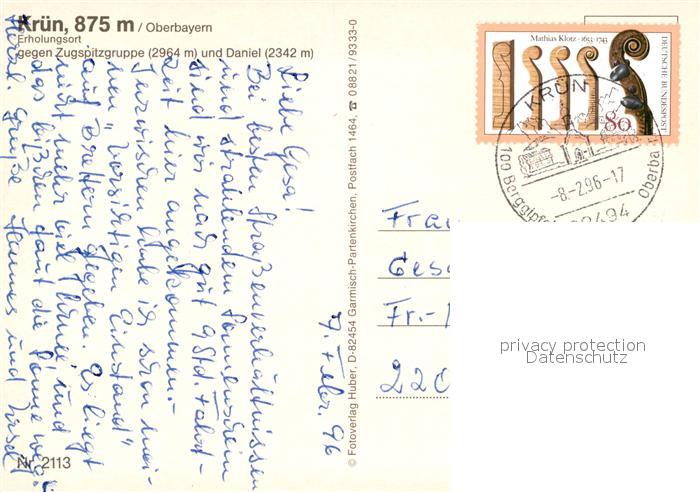 Krün, 875 m / Oberbayern
Erholungsort
gegen Zugspitzgruppe (2964 m) und Daniel (2342 m)
7. Febr. 96
Liebe Gesa!
Bei besten Straßenverhältnissen
und strahlendem Sonnenschein
sind wir nach gut 9 Std. Fahrt-
zeit hier angekommen.-
Inzwischen habe ich schon mei-
nen "vorsichtigen Einstand"
auf Brettern gegeben. Es liegt
nicht mehr viel Schnee, und
das bißchen taut die Sonne weg.
Herzl. Grüße Hannes und
Nr. 2113
© Fotoverlag Huber, D-82454 Garmisch-Partenkirchen, Postfach 1464, ☎ 08821/ 9333-0
Mathias Klotz · 1653-1743
DEUTSCHE BUNDESPOST
80
KRÜN
-8.-2.96-17
82494
100 Berggipfel
Oberba
Frau
Ges
Fr.-
220
privacy protection
Datenschutz